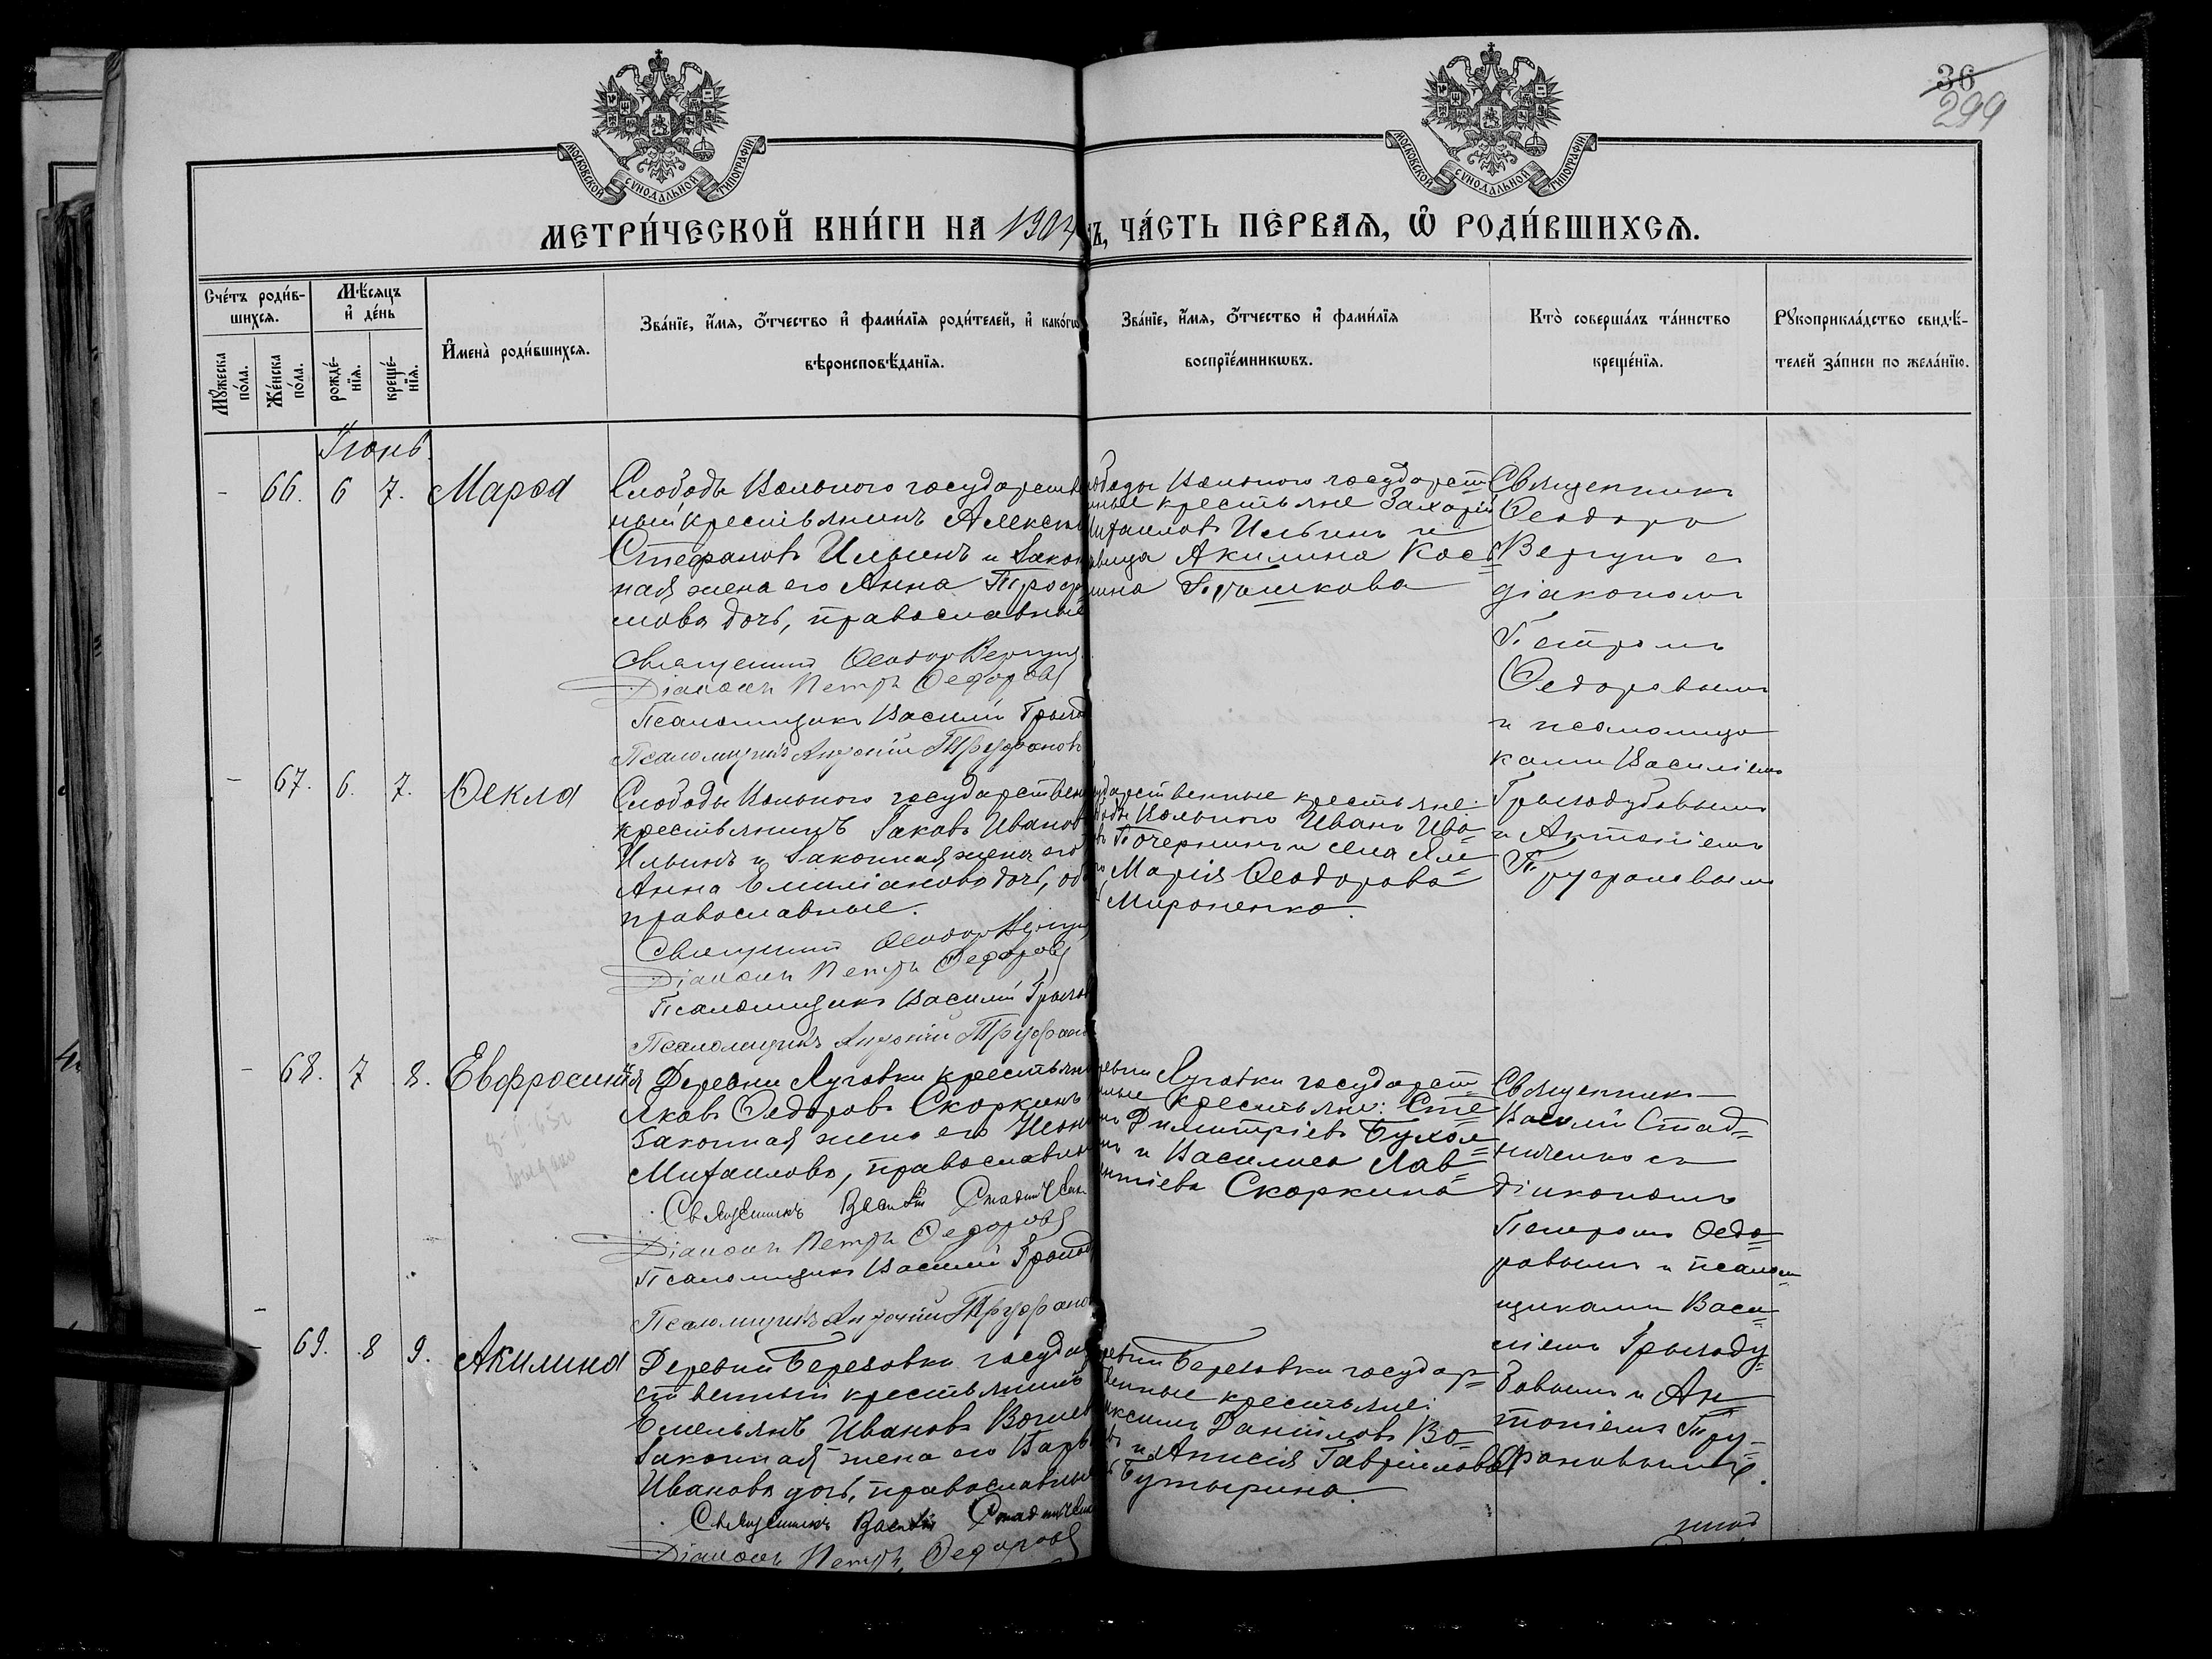 36
299
МОСКОВСКОЙ СѴНОДАЛЬНОЙ ТИПОГРАФІИ
МОСКОВСКОЙ СѴНОДАЛЬНОЙ ТИПОГРАФІИ
МЕТРИ́ЧЕСКОЙ КНИ́ГИ НА 190
ЧА́СТЬ ПЕ́РВАѦ, Ѡ҆ РОДИ́ВШИХСѦ.
Сче́тъ роди́в-
шихсѧ.
Мꙋ́жеска по́ла.
Же́нска по́ла.
Мѣ́сѧцъ и҆ де́нь
рожде́-нїѧ.
креще́-нїѧ.
И҆мена̀ роди́вшихсѧ.
Зва́нїе, и҆́мѧ, ѻ҆́тчество и҆ фами́лїѧ роди́телей, и҆ како́гѡ
вѣроисповѣ́данїѧ.
Зва́нїе, и҆́мѧ, ѻ҆́тчество и҆ фами́лїѧ
воспрїе́мникѡвъ.
Кто̀ соверша́лъ та́инство
креще́нїѧ.
Рꙋкоприкла́дство свидѣ́-
телей за́писи по жела́нїю.
Іюнь.
- 66. 6 7. Марѳа
Слободы Вольного государствен
ный крестьянинъ Алексѣ
Стефановъ Ильинъ и закон
ная жена его Анна Трофи
мова дочь, православные
Священникъ Ѳеодоръ Вергунъ
Діаконъ Петръ Ѳедоровъ
Псаломщикъ Василій Грызод
Псаломщикъ Антоній Труфановъ
ободы Вольного государст=
нные крестьяне Захарій
Михаиловъ Ильинъ и
дѣвица Акилина Кось=
мина Горшкова
Священникъ
Ѳеодоръ
Вергунъ съ
діакономъ
Петромъ
Ѳедоровымъ
и псаломщи
ками Василіемъ
Грызодубовымъ
и Антоніемъ
Труфановымъ
- 67. 6. 7. Ѳекла
Слободы Вольного государствен
крестьянинъ Іаковъ Ивановъ
Ильинъ и законная жена его
Анна Емиліанова дочь, оба
православные.
Священникъ Ѳеодоръ Вергунъ
Діаконъ Петръ Ѳедоровъ
Псаломщикъ Василій Грызод
Псаломщикъ Антоній Труфанов
ударственные крестьяне:
боды Вольного Иванъ Ива=
въ Почернинъ и села Ям=
Марія Ѳеодорова
Мироненко.
- 68. 7 8. Евфросинія
Деревни Луговки крестьянинъ
Яковъ Ѳедоровъ Скоркинъ
законная жена его
Михаилова, православные
Священникъ Василій Стадниченко
Діаконъ Петръ Ѳедоровъ
Псаломщикъ Василій Грызод
Псаломщикъ Антоній Труфанов
ревни Луговки государст=
нные крестьяне: Сте=
нъ Димитріевъ Бухол=
нъ и Василиса Лав=
нтіева Скоркина
Священникъ
Василій Стад=
ниченко съ
діакономъ
Петромъ Ѳедо=
ровымъ и псалом=
щиками Васи=
ліемъ Грызоду=
бовымъ и Ан=
тоніемъ Тру=
фановымъ.
- 69. 8 9. Акилина
Деревни Березовки государ
ственный крестьянинъ
Емельянъ Ивановъ
законная жена его Варва
Иванова дочь, православные
Священникъ Василій Стадниченко
Діаконъ Петръ Ѳедоровъ
ревни Березовки государ=
венные крестьяне:
аксимъ Даніиловъ Во=
въ и Анисія Гавріилова
Бутырина.